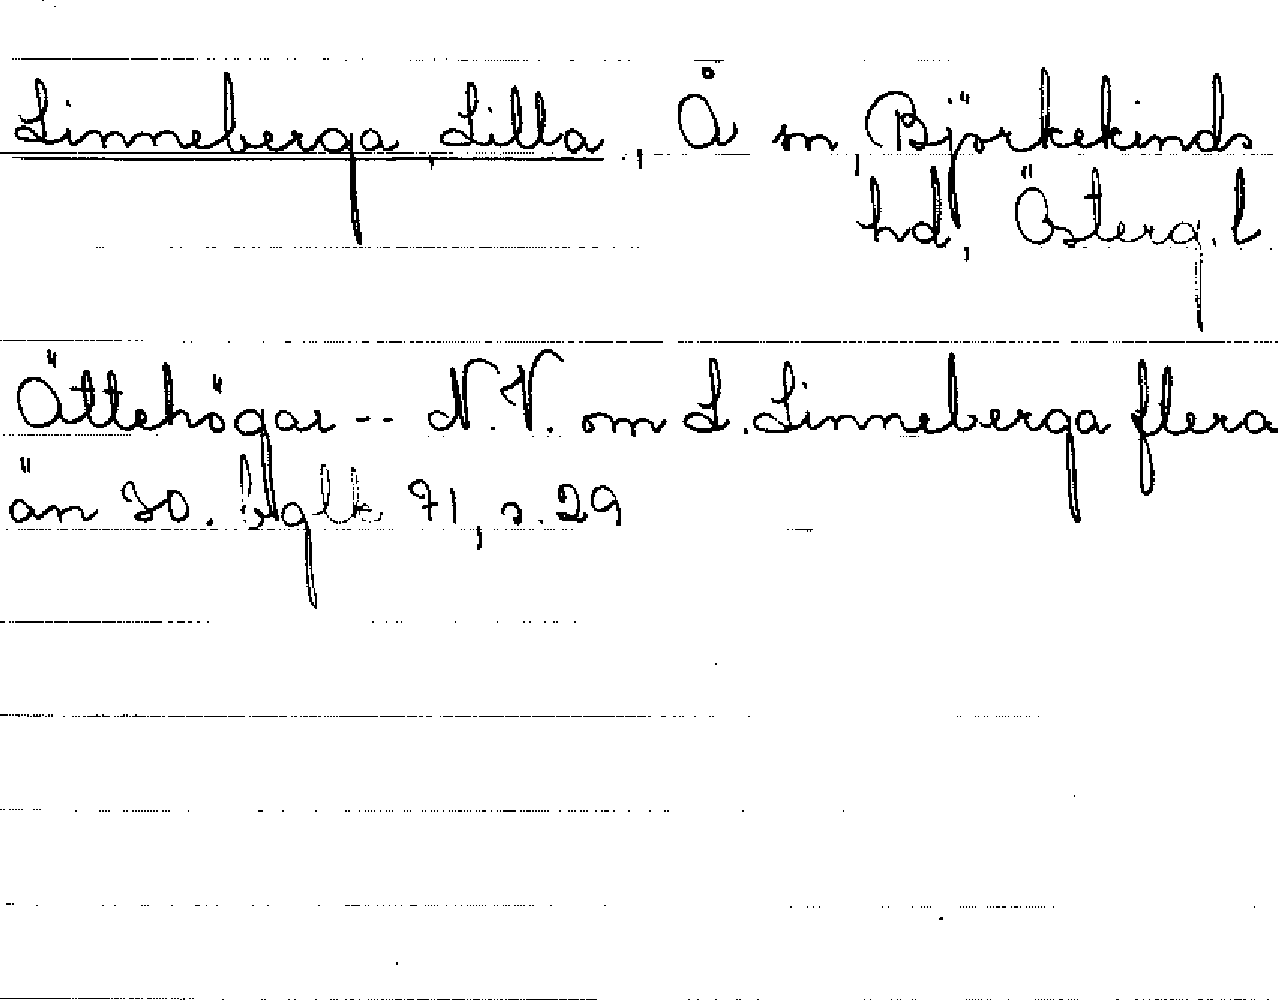 Linneberga, Lilla, Å sn, Björkekinds
hd, Österg. l
Ättehögar -- N.V. om L. Linneberga flera
än 30. 71, s. 29